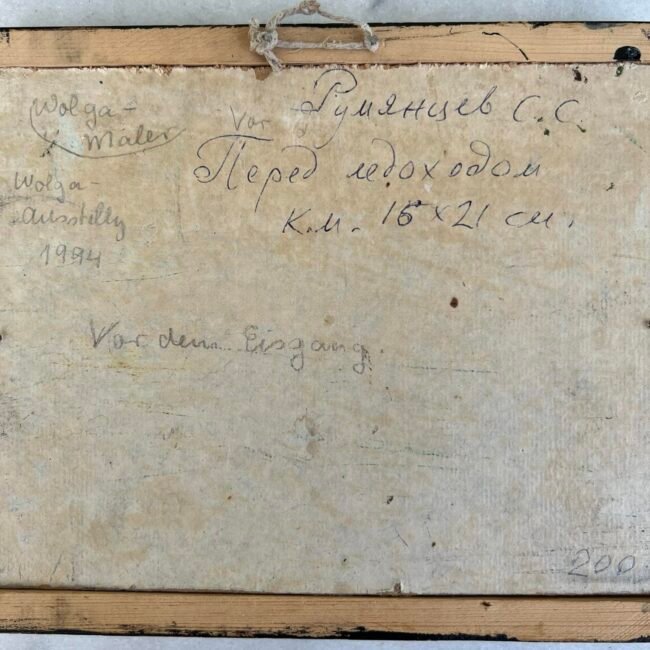 Wolga-
Maler
Vor
Румянцев С. С.
Перед ледоходом
К.м. 16×21 см.
Wolga-
Ausstellg
1994
Vor dem Eisgang
200